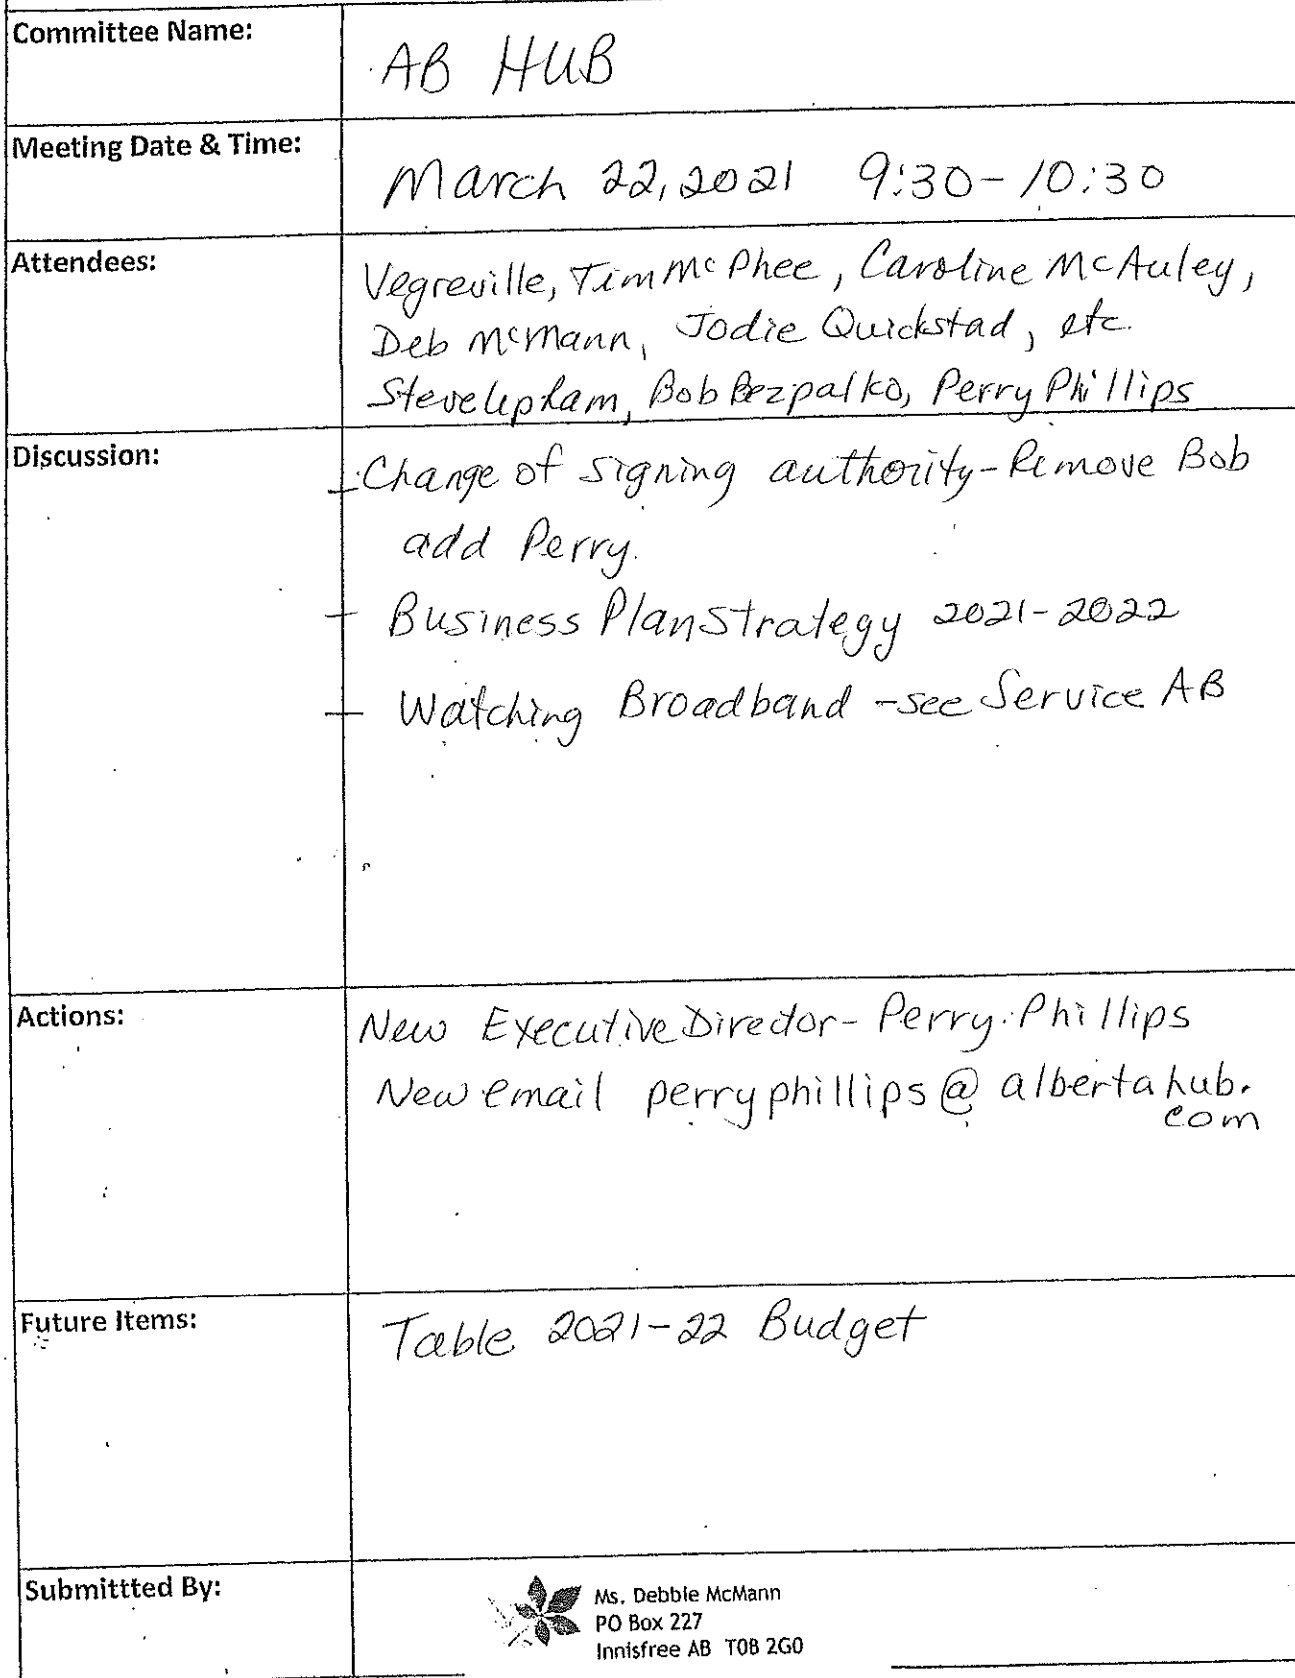 Committee Name:
AB HUB
Meeting Date & Time:
March 22, 2021 9:30-10:30
Attendees:
Vegreville, Tim McPhee, Caroline McAuley,
Deb McMann, Jodie Quickstad, etc.
Steve Upham, Bob Bezpalko, Perry Phillips
Discussion:
- Change of signing authority - Remove Bob
add Perry.
- Business Plan Strategy 2021-2022
- Watching Broadband - see Service AB
Actions:
New Executive Director - Perry Phillips
New email perryphillips@albertahub.
com
Future Items:
Table 2021-22 Budget
Submittted By:
Ms. Debbie McMann
PO Box 227
Innisfree AB T0B 2G0